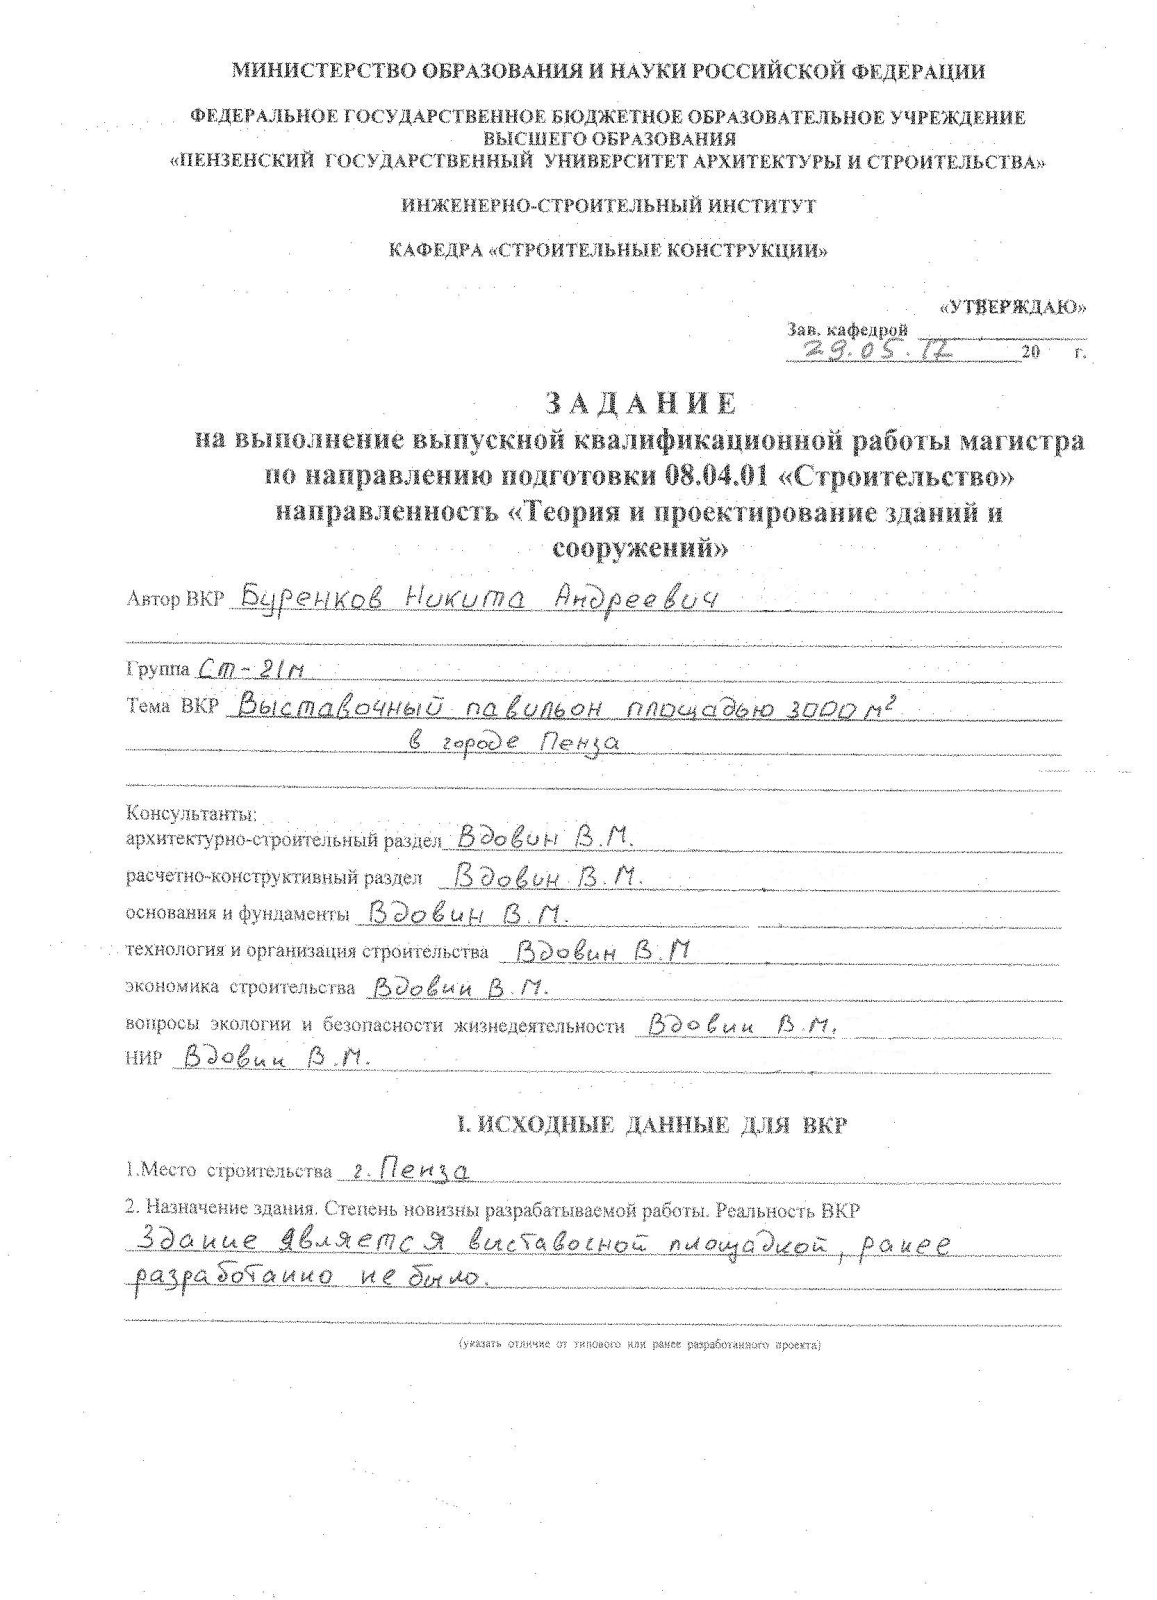 МИНИСТЕРСТВО ОБРАЗОВАНИЯ И НАУКИ РОССИЙСКОЙ ФЕДЕРАЦИИ
ФЕДЕРАЛЬНОЕ ГОСУДАРСТВЕННОЕ БЮДЖЕТНОЕ ОБРАЗОВАТЕЛЬНОЕ УЧРЕЖДЕНИЕ
ВЫСШЕГО ОБРАЗОВАНИЯ
«ПЕНЗЕНСКИЙ ГОСУДАРСТВЕННЫЙ УНИВЕРСИТЕТ АРХИТЕКТУРЫ И СТРОИТЕЛЬСТВА»
ИНЖЕНЕРНО-СТРОИТЕЛЬНЫЙ ИНСТИТУТ
КАФЕДРА «СТРОИТЕЛЬНЫЕ КОНСТРУКЦИИ»
«УТВЕРЖДАЮ»
Зав. кафедрой
29.05.17 20 г.
З А Д А Н И Е
на выполнение выпускной квалификационной работы магистра
по направлению подготовки 08.04.01 «Строительство»
направленность «Теория и проектирование зданий и
сооружений»
Автор ВКР Буренков Никита Андреевич
Группа Ст-21м
Тема ВКР Выставочный павильон площадью 3000 м²
в городе Пенза
Консультанты:
архитектурно-строительный раздел Вдовин В.М.
расчетно-конструктивный раздел Вдовин В.М.
основания и фундаменты Вдовин В.М.
технология и организация строительства Вдовин В.М
экономика строительства Вдовин В.М.
вопросы экологии и безопасности жизнедеятельности Вдовин В.М.
НИР Вдовин В.М.
I. ИСХОДНЫЕ ДАННЫЕ ДЛЯ ВКР
1.Место строительства г. Пенза
2. Назначение здания. Степень новизны разрабатываемой работы. Реальность ВКР
Здание является выставочной площадкой, ранее
разработанно не было.
(указать отличие от типового или ранее разработанного проекта)